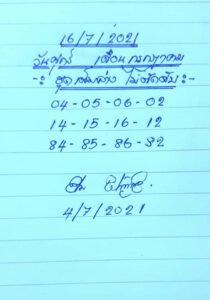 16/7/2021
วันศุกร์ เดือนกรกฎาคม
-: ชุด ล่าง :-
04-05-06-02
14-15-16-12
84-85-86-82
4/7/2021